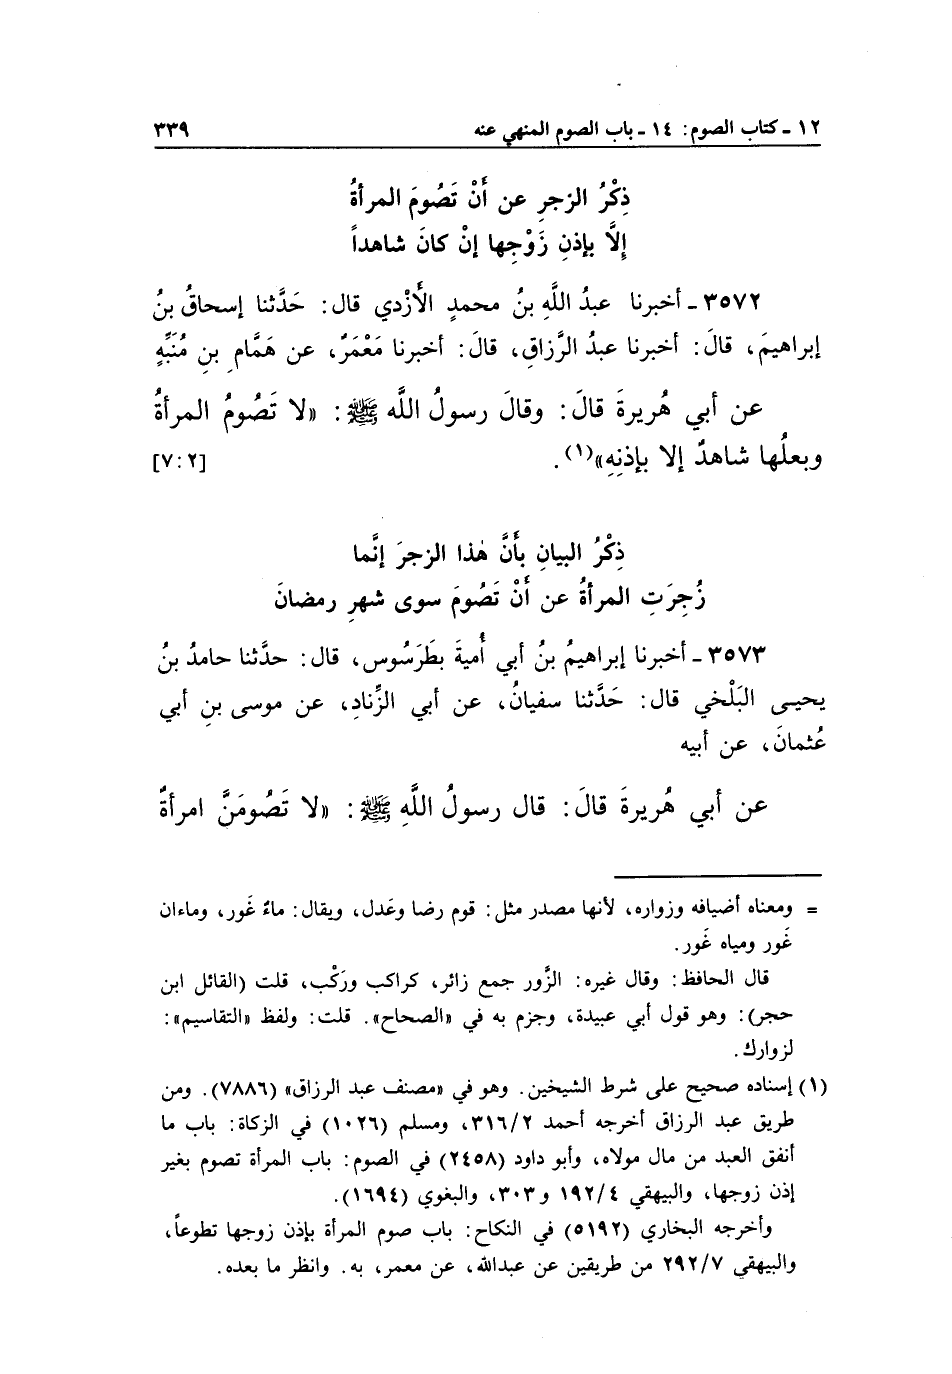 ١٢ ـ كتاب الصوم: ١٤ ـ باب الصوم المنهي عنه ٣٣٩
ذِكْرُ الزجرِ عن أَنْ تَصُومَ المرأةُ
إِلَّا بإذنِ زَوْجِها إنْ كانَ شاهداً
٣٥٧٢ ـ أخبرنا عبدُ اللَّهِ بنُ محمدٍ الأَزْدي قال: حَدَّثنا إسحاقُ بنُ
إبراهيمَ، قالَ: أخبرنا عبدُ الرَّزاقِ، قالَ: أخبرنا مَعْمَرٌ، عن هَمَّامِ بنِ مُنَبِّهٍ
عن أبي هُريرةَ قالَ: وقالَ رسولُ اللَّه ﷺ: «لا تَصُومُ المرأةُ
وبعلُها شاهدٌ إلا بإذنِهِ»(١). [٢:٧]
ذِكْرُ البيانِ بأنَّ هٰذا الزجرَ إنَّما
زُجِرَتِ المرأةُ عن أَنْ تَصُومَ سوى شهرِ رمضانَ
٣٥٧٣ ـ أخبرنا إبراهيمُ بنُ أبي أُميةَ بطَرَسُوس، قال: حدَّثنا حامدُ بنُ
يحيـى البَلْخي قال: حَدَّثنا سفيانُ، عن أبي الزِّنادِ، عن موسى بنِ أبي
عُثمانَ، عن أبيه
عن أبي هُريرةَ قالَ: قال رسولُ اللَّهِ ﷺ: «لا تَصُومَنَّ امرأةٌ
= ومعناه أضيافه وزواره، لأنها مصدر مثل: قوم رضا وعَدل، ويقال: ماءٌ غَور، وماءان
غَور ومياه غَور.
قال الحافظ: وقال غيره: الزَّور جمع زائر، كراكب ورَكْب، قلت (القائل ابن
حجر): وهو قول أبي عبيدة، وجزم به في «الصحاح». قلت: ولفظ «التقاسيم»:
لزوارك.
(١) إسناده صحيح على شرط الشيخين. وهو في «مصنف عبد الرزاق» (٧٨٨٦). ومن
طريق عبد الرزاق أخرجه أحمد ٣١٦/٢، ومسلم (١٠٢٦) في الزكاة: باب ما
أنفق العبد من مال مولاه، وأبو داود (٢٤٥٨) في الصوم: باب المرأة تصوم بغير
إذن زوجها، والبيهقي ١٩٢/٤ و٣٠٣، والبغوي (١٦٩٤).
وأخرجه البخاري (٥١٩٢) في النكاح: باب صوم المرأة بإذن زوجها تطوعاً،
والبيهقي ٢٩٢/٧ من طريقين عن عبدالله، عن معمر، به. وانظر ما بعده.